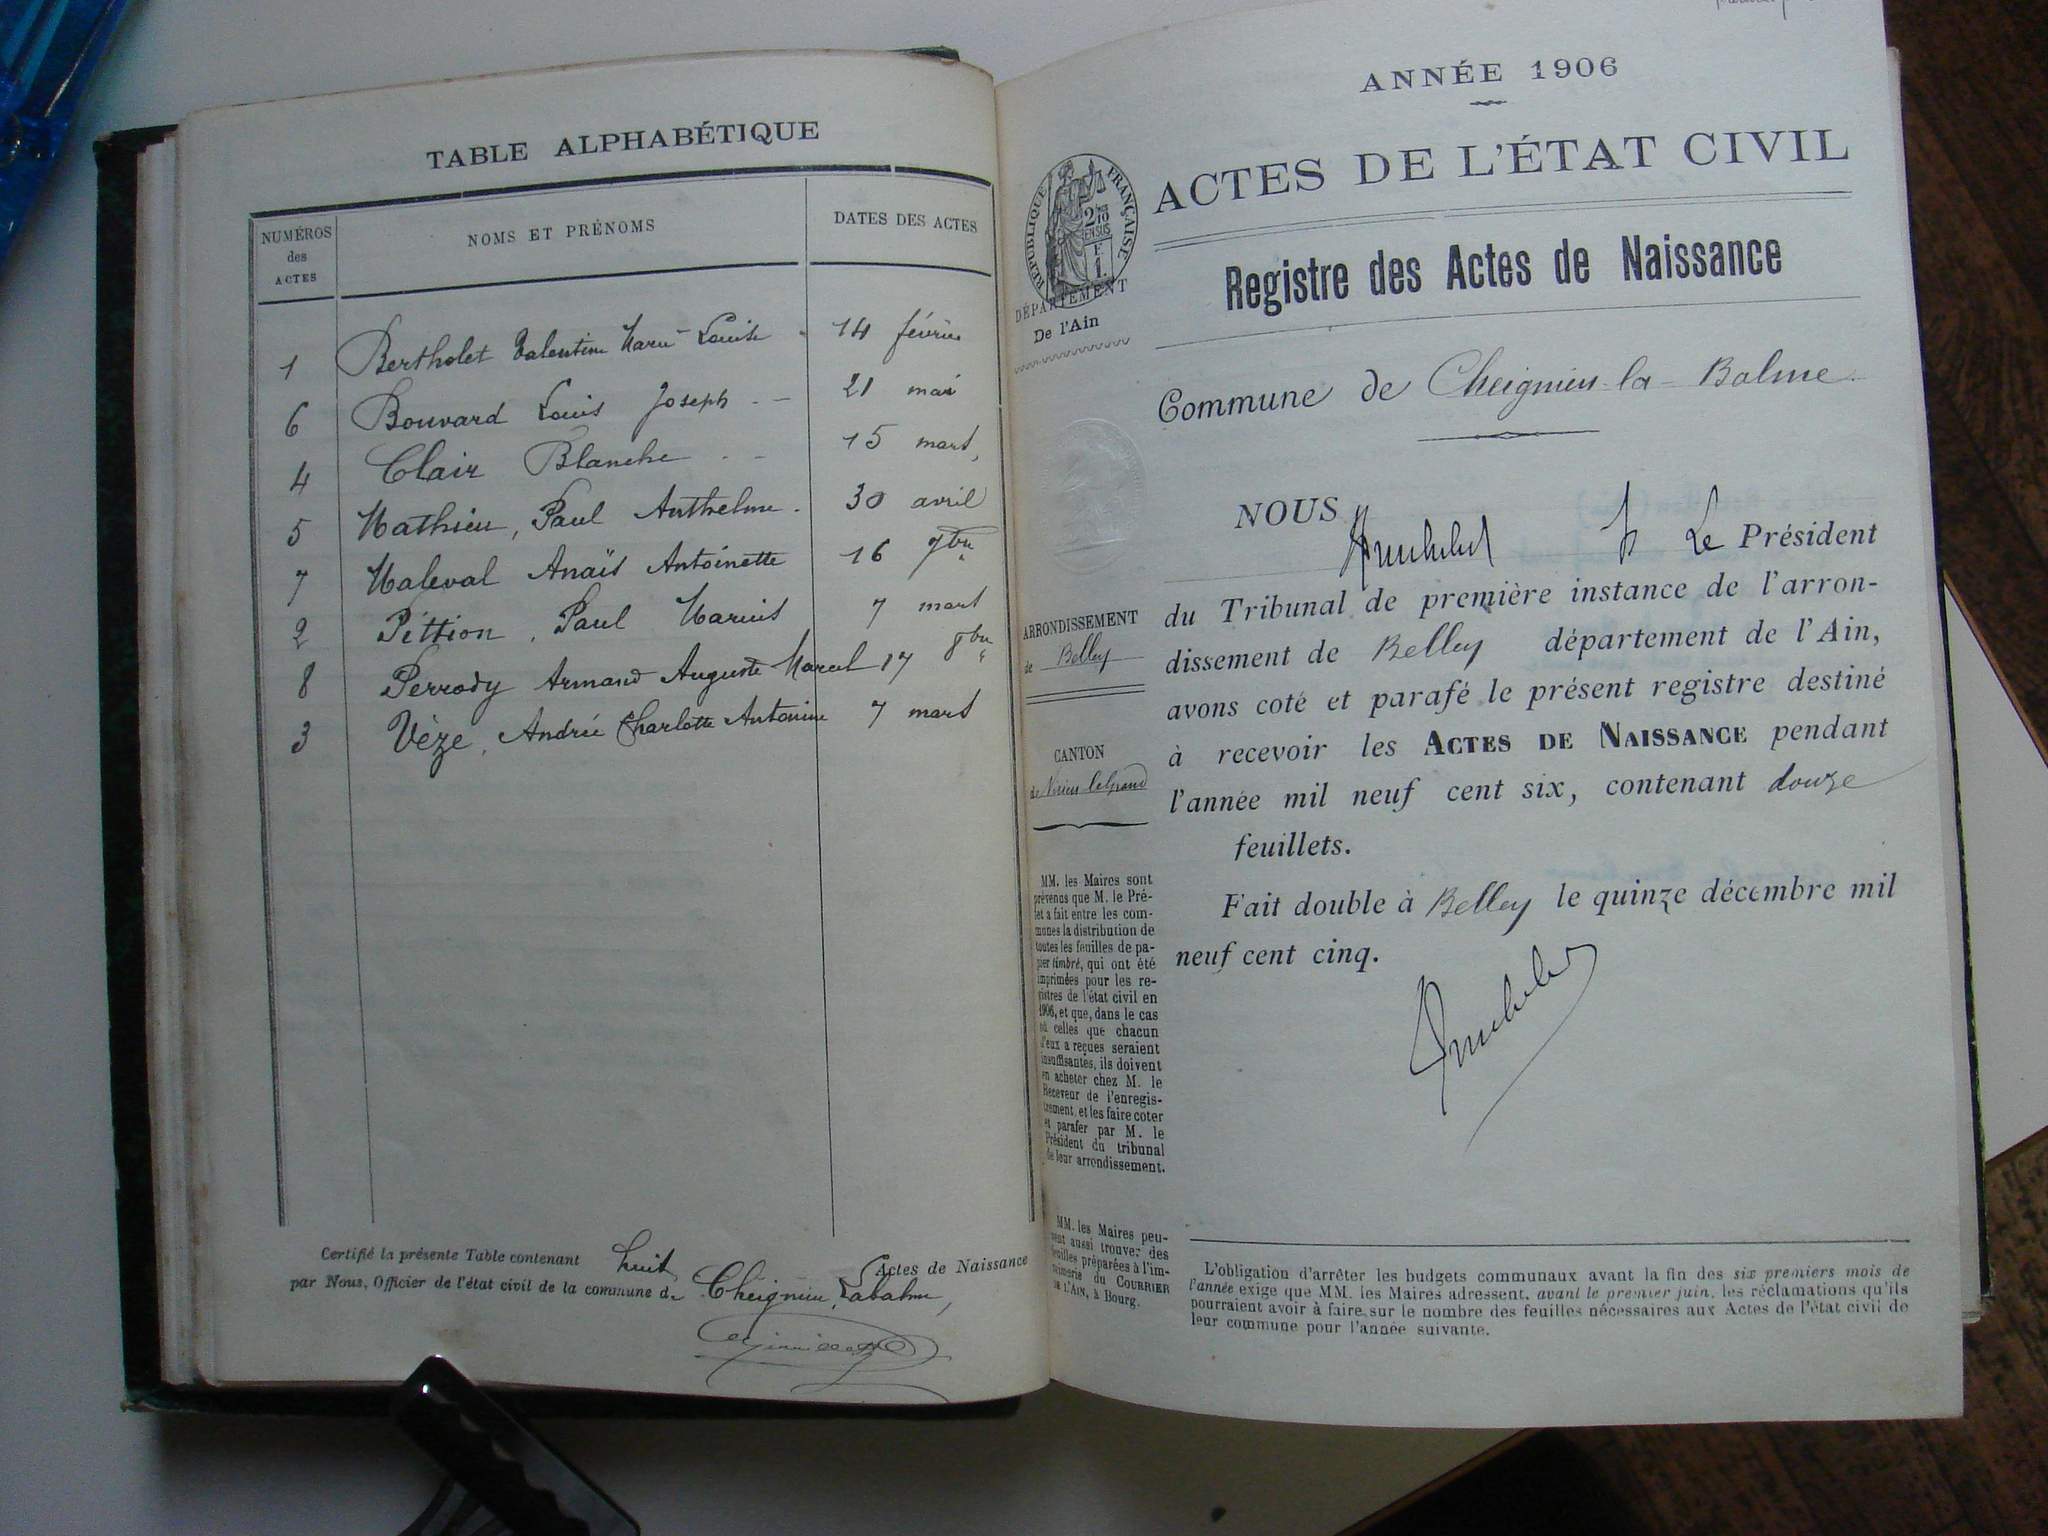 TABLE ALPHABÉTIQUE
NUMÉROS des ACTES
NOMS ET PRÉNOMS
DATES DES ACTES
1 Bertholet Valentine Marie-Louise 14 février
6 Bouvard Louis Joseph 21 mai
4 Clair Blanche 15 mars,
5 Mathieu, Paul Anthelme. 30 avril
7 Maleval Anaïs Antoinette 16 7bre
2 Pittion, Paul Marius 7 mars
8 Perrody Armand Auguste Marcel 17 8bre
3 Vèze, Andrée Charlotte Antonine 7 mars
Certifié la présente Table contenant huit Actes de Naissance
par Nous, Officier de l'état civil de la commune de Cheignieu Labalme,
ANNÉE 1906
ACTES DE L'ÉTAT CIVIL
RÉPUBLIQUE FRANÇAISE
2/10 EN SUS
F. 1.
DÉPARTEMENT
De l'Ain
Registre des Actes de Naissance
Commune de Cheignieu-la-Balme
NOUS Le Président
du Tribunal de première instance de l'arron-
dissement de Belley département de l'Ain,
avons coté et parafé le présent registre destiné
à recevoir les ACTES DE NAISSANCE pendant
l'année mil neuf cent six, contenant douze
feuillets.
Fait double à Belley le quinze décembre mil
neuf cent cinq.
ARRONDISSEMENT
de Belley
CANTON
de Virieu leGrand
MM. les Maires sont
prévenus que M. le Pré-
fet a fait entre les com-
munes la distribution de
toutes les feuilles de pa-
pier timbré, qui ont été
imprimées pour les re-
gistres de l'état civil en
1906, et que, dans le cas
où celles que chacun
d'eux a reçues seraient
insuffisantes, ils doivent
en acheter chez M. le
Receveur de l'enregis-
trement, et les faire coter
et parafer par M. le
Président du tribunal
de leur arrondissement.
MM. les Maires peu-
vent aussi trouver des
feuilles préparées à l'im-
primerie du COURRIER
DE L'AIN, à Bourg.
L'obligation d'arrêter les budgets communaux avant la fin des six premiers mois de
l'année exige que MM. les Maires adressent, avant le premier juin, les réclamations qu'ils
pourraient avoir à faire sur le nombre des feuilles nécessaires aux Actes de l'état civil de
leur commune pour l'année suivante.